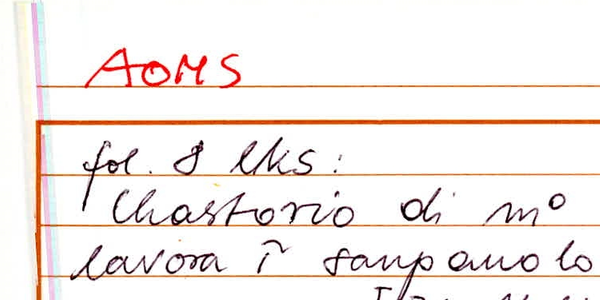 AOMS
fol. 8 lks:
Chastorio di mº
lavora ĩ sanpaulo